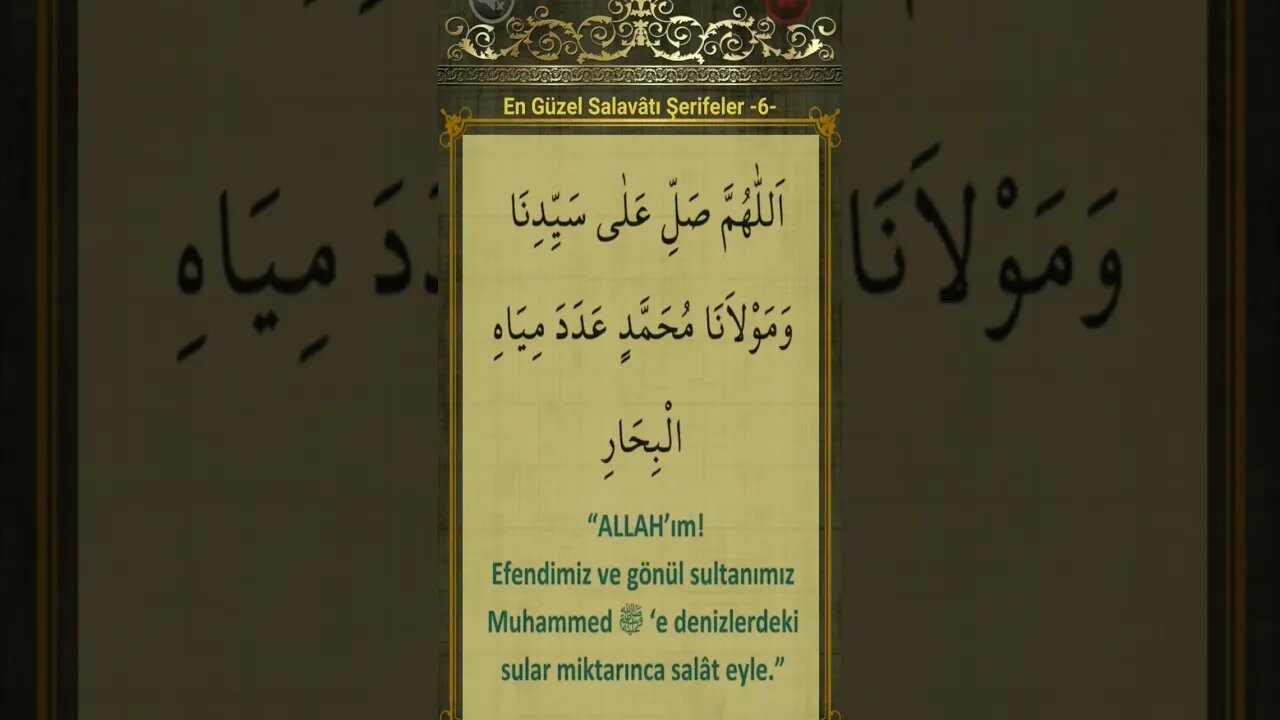 En Güzel Salavâtı Şerifeler -6-
اَللّٰهُمَّ صَلِّ عَلٰى سَيِّدِنَا
وَمَوْلاَنَا مُحَمَّدٍ عَدَدَ مِيَاهِ
الْبِحَارِ
“ALLAH’ım!
Efendimiz ve gönül sultanımız
Muhammed ﷺ ‘e denizlerdeki
sular miktarınca salât eyle.”